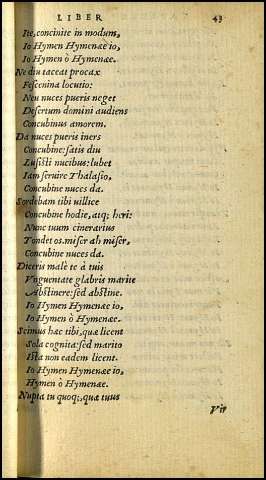 LIBER 43
Ite, concinite in modum,
Io Hymen Hymenæe io,
Io Hymen ô Hymenæe.
Ne diu taceat procax
Fescenina locutio:
Neu nuces pueris neget
Desertum domini audiens
Concubinus amorem.
Da nuces pueris iners
Concubine: satis diu
Lusisti nucibus: lubet
Iam seruire Thalasio,
Concubine nuces da.
Sordebam tibi uillice
Concubine hodie, atq; heri:
Nunc tuum cinerarius
Tondet os. miser ah miser,
Concubine nuces da.
Diceris malè te à tuis
Vnguentate glabris marite
Abstinere: sed abstine.
Io Hymen Hymenæe io,
Io Hymen ô Hymenæe.
Scimus hæc tibi, quæ licent
Sola cognita: sed marito
Ista non eadem licent.
Io Hymen Hymenæe io,
Hymen ô Hymenæe.
Nupta tu quoq;, quæ tuus
Vir